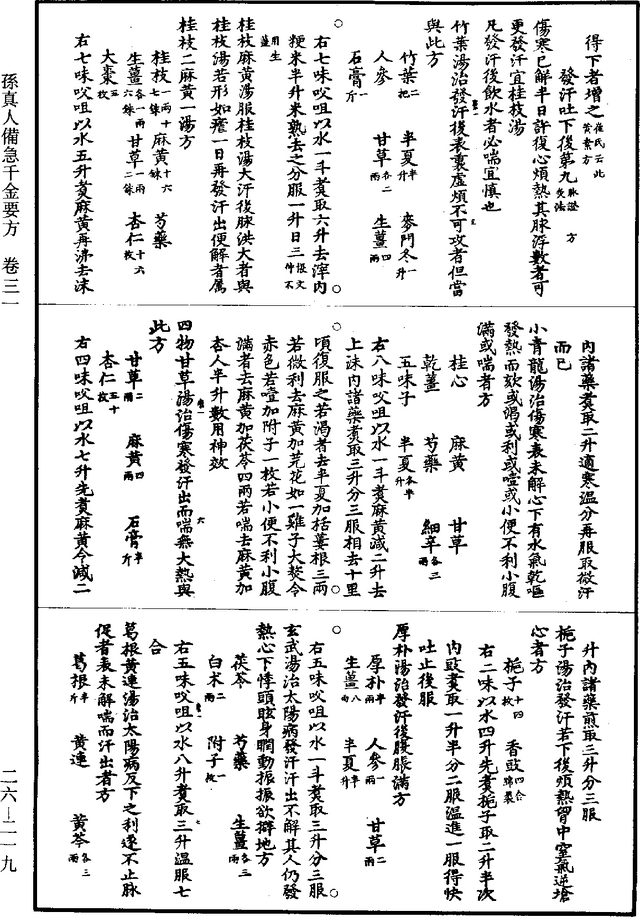 孫真人備急千金要方　卷三一
得下者增之崔氏云此黃素方
發汗吐下後第九脉證灸法方
傷寒已解半日許復心煩熱其脉浮數者可
更發汗宜桂枝湯
凡發汗後飲水者必喘宜慎也
竹葉湯治發汗後表裏虛煩不可攻者但當
與此方
竹葉二把　半夏半升　麥門冬一升
人參　甘草各二兩　生薑四兩
石膏一斤
右七味㕮咀以水一斗煑取六升去滓内
粳米半升米熟去之分服一升日三
桂枝麻黃湯服桂枝湯大汗後脉洪大者與
桂枝湯若形如瘧一日再發汗出便解者屬
桂枝二麻黃一湯方
桂枝一兩十七銖　麻黃十六銖　芍藥
生薑各一兩六銖　甘草一兩二銖　杏仁十六枚
大棗五枚
右七味㕮咀以水五升煑麻黃再沸去沫
内諸藥煑取二升適寒溫分再服取微汗
而已
小青龍湯治傷寒表未解心下有水氣乾嘔
發熱而欬或渴或利或噎或小便不利小腹
滿或喘者方
桂心　麻黃　甘草
乾薑　芍藥　細辛各三兩
五味子　半夏各半升
右八味㕮咀以水一斗煑麻黃減二升去
上沫内諸藥煑取三升分三服相去十里
頃復服之若渴者去半夏加栝蔞根三兩
若微利去麻黃加芫花如一雞子大熬令
赤色若噎加附子一枚若小便不利小腹
滿者去麻黃加茯苓四兩若喘去麻黃加
杏人半升數用神效
四物甘草湯治傷寒發汗出而喘無大熱與
此方
甘草二兩　麻黃四兩　石膏半斤
杏仁五十枚
右四味㕮咀以水七升先煑麻黃令減二
升内諸藥煎取三升分三服
梔子湯治發汗若下後煩熱胷中窒氣逆搶
心者方
梔子十四枚　香豉四合綿裹
右二味以水四升先煑梔子取二升半次
内豉煑取一升半分二服溫進一服得快
吐止後服
厚朴湯治發汗後腹脹滿方
厚朴半斤　人參一兩　甘草二兩
生薑八兩　半夏半升
右五味㕮咀以水一斗煑取三升分三服
玄武湯治太陽病發汗汗出不解其人仍發
熱心下悸頭眩身瞤動振振欲擗地方
茯苓　芍藥　生薑各三兩
白术二兩　附子一枚
右五味㕮咀以水八升煑取三升溫服七
合
葛根黃連湯治太陽病反下之利遂不止脉
促者表未解喘而汗出者方
葛根半斤　黃連　黃芩各三兩
二六—二一九